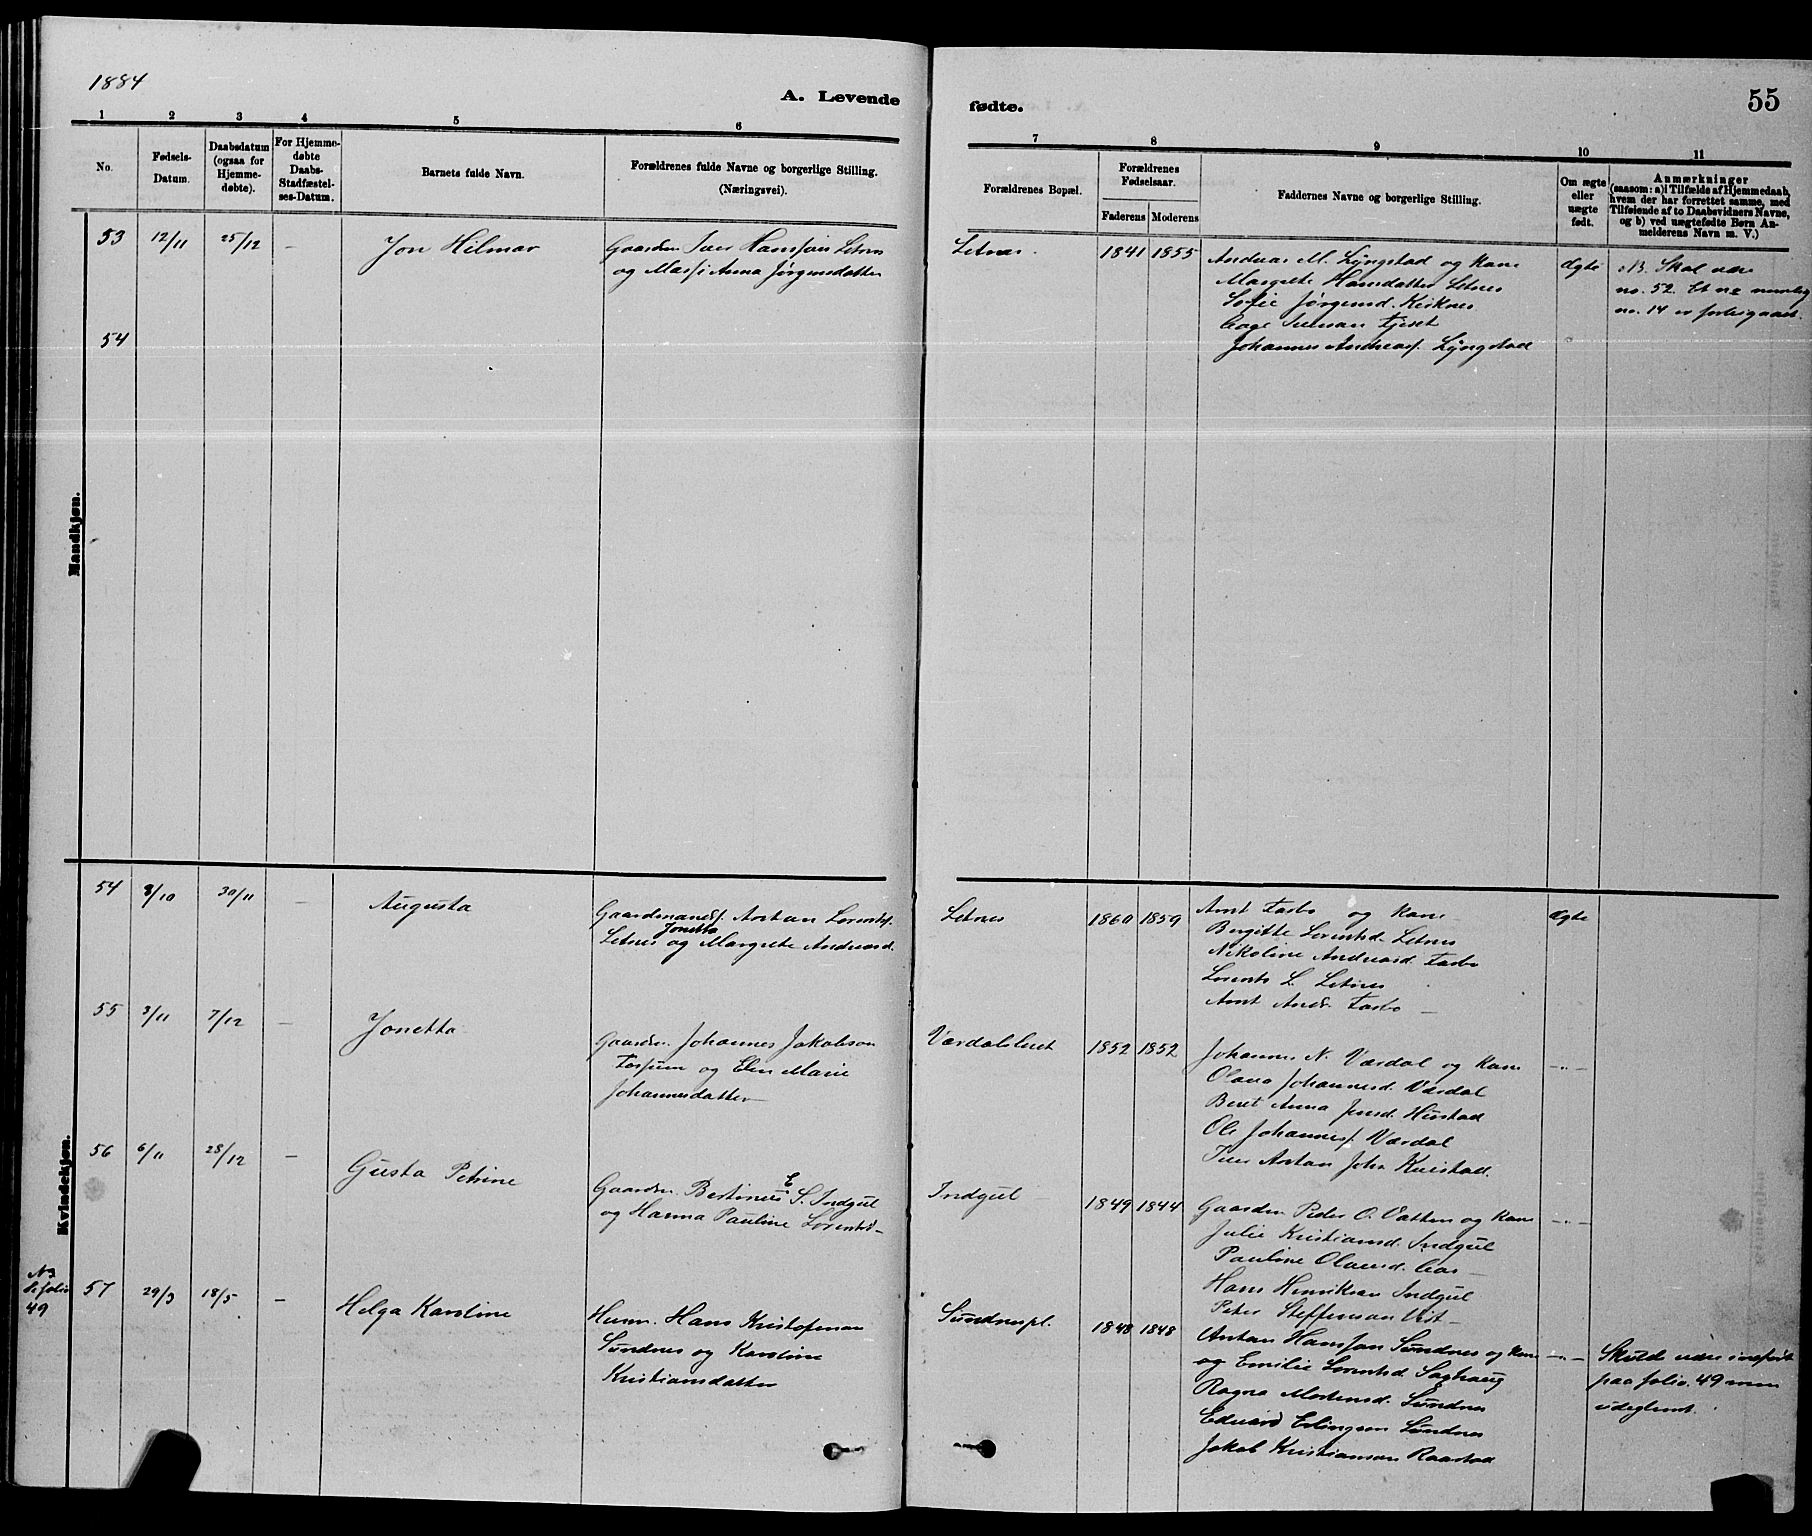 1884
A. Levende
fødte.
55
1 2 3 4 5 6
7 8 9 10 11
No.
Fødsels-
Datum.
Daabsdatum
(ogsaa for
Hjemme-
døbte).
For Hjemme-
døbte
Daabs-
Stadfæstel-
ses-Datum.
Barnets fulde Navn.
Forældrenes fulde Navne og borgerlige Stilling.
(Næringsvei).
Forældrenes Bopæl.
Forældrenes
Fødselsaar.
Faderens
Moderens
Faddernes Navne og borgerlige Stilling.
Om ægte
eller
uægte
født.
Anmærkninger
(saasom: a) I Tilfælde af Hjemmedaab,
hvem der har forrettet samme, med
Tilføiende af to Daabsvidners Navne,
og b) ved uægtefødte Børn An-
melderens Navn m. V.)
Mandkjøn.
53 12/11 25/12 -
Jon Hilmar
Gaardm. Iver Hansson Letnes
og Anna Jørgensdatter
Letnes.
1841 1855
Andreas M. Lÿngstad og Kone
Margrete Hansdatter Letnes
Sofie Jørgensd.
Johannes Andreass. Lÿngstad
Ægte
NB. Skal være
no. 52. Et no nemlig
no. 14 er forbigaaet.
54
Kvindekjøn.
54 8/10 30/11 -
Augusta
Gaardmands. Anton Lorents.
Jonetta
Letnes og Margrete Andreasd.
Letnes
1860 1859
Arnt og Kone
Birgitte Lorentsd. Letnes
Nikoline Andreasd.
Lorents L. Letnes
Arnt Andr.
Ægte
55 3/11 7/12 -
Jonetta
Gaardm. Johannes Jakobson
og Elen Marie
Johannesdatter
Værdalsleret
1852 1852
Johannes N. Værdal og Kone
Olava Johannesd. Værdal
Beret Anna Hustad
Ole Johanness. Værdal
Iver Anton Joh.
-"-
56 6/11 28/12 -
Gusta Petrine
E
Gaardm. Bertinus S. Indgul
og Hanna Pauline Lorentsd-
Indgul
1849 1844
Gaardm. Peder O. Vatten og Kone
Julie Kristiansd. Indgul
Pauline Olausd.
Hans Henriksen Indgul
Peter Steffensen Vist-
-"-
NB
Se folio
49
57 29/3 18/5 -
Helga Karoline
Husm. Hans Kristofersen
Sundnes og Karoline
Kristiansdatter
Sundnespl.
1848 1848
Anton Hansson Sundnes og Kone
og Emilie Lorentsd. Saghaug
Ragna Mortensd. Sundnes
Eduard Erlingsen Sundnes
Jakob Kristiansen Raastad
-"-
Skulde være indført
paa folio. 49 men
udeglemt.